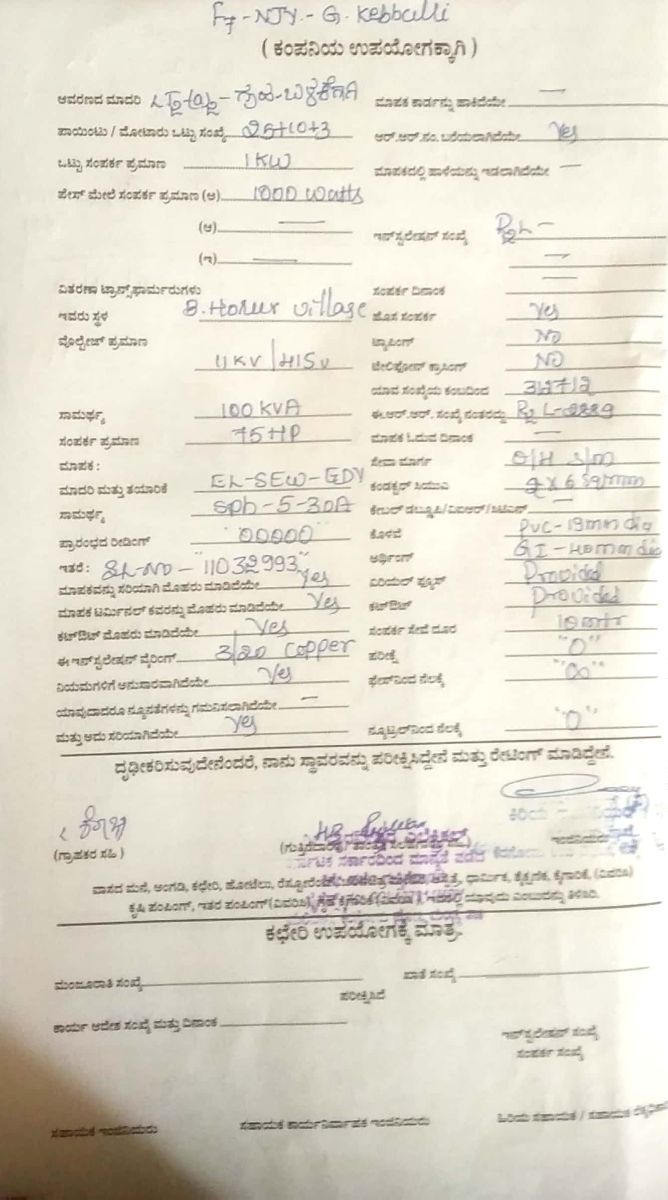 F7-NJY.- G. Kebballi
( ಕಂಪನಿಯ ಉಪಯೋಗಕ್ಕಾಗಿ )
ಆವರಣದ ಮಾದರಿ ಗೃಹ-ಬಳಕೆಗಾಗಿ ಮಾಪಕ ಕಾರ್ಡನ್ನು ಹಾಕಿದೆಯೇ —
ಪಾಯಿಂಟು / ಮೋಟಾರು ಒಟ್ಟು ಸಂಖ್ಯೆ 25+10+3 ಆರ್.ಆರ್.ನಂ. ಬರೆಯಲಾಗಿದೆಯೇ Yes
ಒಟ್ಟು ಸಂಪರ್ಕ ಪ್ರಮಾಣ 1KW ಮಾಪಕದಲ್ಲಿ ಹಾಳೆಯನ್ನು ಇಡಲಾಗಿದೆಯೇ —
ಫೇಸ್ ಮೇಲೆ ಸಂಪರ್ಕ ಪ್ರಮಾಣ (ಅ) 1000 Watts
(ಆ) — ಇನ್‌ಸ್ಟಲೇಷನ್ ಸಂಖ್ಯೆ
(ಇ) — —
ವಿತರಣಾ ಟ್ರಾನ್ಸ್‌ಫಾರ್ಮರುಗಳು ಸಂಪರ್ಕ ದಿನಾಂಕ —
ಇವರು ಸ್ಥಳ B. Hosur village ಹೊಸ ಸಂಪರ್ಕ Yes
ವೋಲ್ಟೇಜ್ ಪ್ರಮಾಣ ಟ್ಯಾಪಿಂಗ್ NO
11KV/415V ಟೆಲಿಫೋನ್ ಕ್ರಾಸಿಂಗ್ NO
ಯಾವ ಸಂಖ್ಯೆಯ ಕಂಬದಿಂದ
ಸಾಮರ್ಥ್ಯ 100KVA ಈ.ಆರ್.ಆರ್. ಸಂಖ್ಯೆ ನಂತರದ್ದು L-2229
ಸಂಪರ್ಕ ಪ್ರಮಾಣ 75HP ಮಾಪಕ ಓದುವ ದಿನಾಂಕ —
ಮಾಪಕ : ಸೇವಾ ಮಾರ್ಗ O/H S/M
ಮಾದರಿ ಮತ್ತು ತಯಾರಿಕೆ EL-SEW-GDY ಕಂಡಕ್ಟರ್ ಸಿಯುಎ 2x6 sqmm
ಸಾಮರ್ಥ್ಯ Sph-5-30A ಕೇಬಲ್ ಡಬ್ಲೂಪಿ/ವಿಐಆರ್/ಸಿಟಿಎಸ್ —
ಪ್ರಾರಂಭದ ರೀಡಿಂಗ್ "00000" ಕೊಳವೆ PVC-19mm dia
ಇತರೆ : SL-NO - "11032993" ಅರ್ಥಿಂಗ್ GI-40mm dia
ಮಾಪಕವನ್ನು ಸರಿಯಾಗಿ ಮೊಹರು ಮಾಡಿದೆಯೇ Yes ಏರಿಯಲ್ ಫ್ಯೂಸ್ Provided
ಮಾಪಕ ಟರ್ಮಿನಲ್ ಕವರನ್ನು ಮೊಹರು ಮಾಡಿದೆಯೇ Yes ಕಟ್‌ಔಟ್ Provided
ಕಟ್‌ಔಟ್ ಮೊಹರು ಮಾಡಿದೆಯೇ Yes ಸಂಪರ್ಕ ಸೇವೆ ದೂರ 10mtr
ಈ ಇನ್‌ಸ್ಟಲೇಷನ್ ವೈರಿಂಗ್ 3/20 copper ಪರೀಕ್ಷೆ "0"
ನಿಯಮಗಳಿಗೆ ಅನುಸಾರವಾಗಿದೆಯೇ Yes ಫೇಸ್‌ನಿಂದ ನೆಲಕ್ಕೆ "∞"
ಯಾವುದಾದರೂ ನ್ಯೂನತೆಗಳನ್ನು ಗಮನಿಸಲಾಗಿದೆಯೇ —
ಮತ್ತು ಅದು ಸರಿಯಾಗಿದೆಯೇ Yes ನ್ಯೂಟ್ರಲ್‌ನಿಂದ ನೆಲಕ್ಕೆ "0"
ದೃಢೀಕರಿಸುವುದೇನೆಂದರೆ, ನಾನು ಸ್ಥಾವರವನ್ನು ಪರೀಕ್ಷಿಸಿದ್ದೇನೆ ಮತ್ತು ರೇಟಿಂಗ್ ಮಾಡಿದ್ದೇನೆ.
(ಗ್ರಾಹಕರ ಸಹಿ) ಇಂಜಿನಿಯರು
ವಾಸದ ಮನೆ, ಅಂಗಡಿ, ಕಛೇರಿ, ಹೋಟೆಲು, ಧಾರ್ಮಿಕ, ಶೈಕ್ಷಣಿಕ, ಕೈಗಾರಿಕೆ, (ವಿವರಿಸಿ)
ಕೃಷಿ ಪಂಪಿಂಗ್, ಇತರ ಪಂಪಿಂಗ್ (ವಿವರಿಸಿ), ಯಾವುದು ಎಂಬುದನ್ನು ತಿಳಿಸಿರಿ.
ಕಛೇರಿ ಉಪಯೋಗಕ್ಕೆ ಮಾತ್ರ.
ಮಂಜೂರಾತಿ ಸಂಖ್ಯೆ ಖಾತೆ ಸಂಖ್ಯೆ
ಪರೀಕ್ಷಿಸಿದೆ
ಕಾರ್ಯ ಆದೇಶ ಸಂಖ್ಯೆ ಮತ್ತು ದಿನಾಂಕ
ಇನ್‌ಸ್ಟಲೇಷನ್ ಸಂಖ್ಯೆ
ಸಂಪರ್ಕ ಸಂಖ್ಯೆ
ಸಹಾಯಕ ಇಂಜಿನಿಯರು ಸಹಾಯಕ ಕಾರ್ಯನಿರ್ವಾಹಕ ಇಂಜಿನಿಯರು ಹಿರಿಯ ಸಹಾಯಕ / ಸಹಾಯಕ